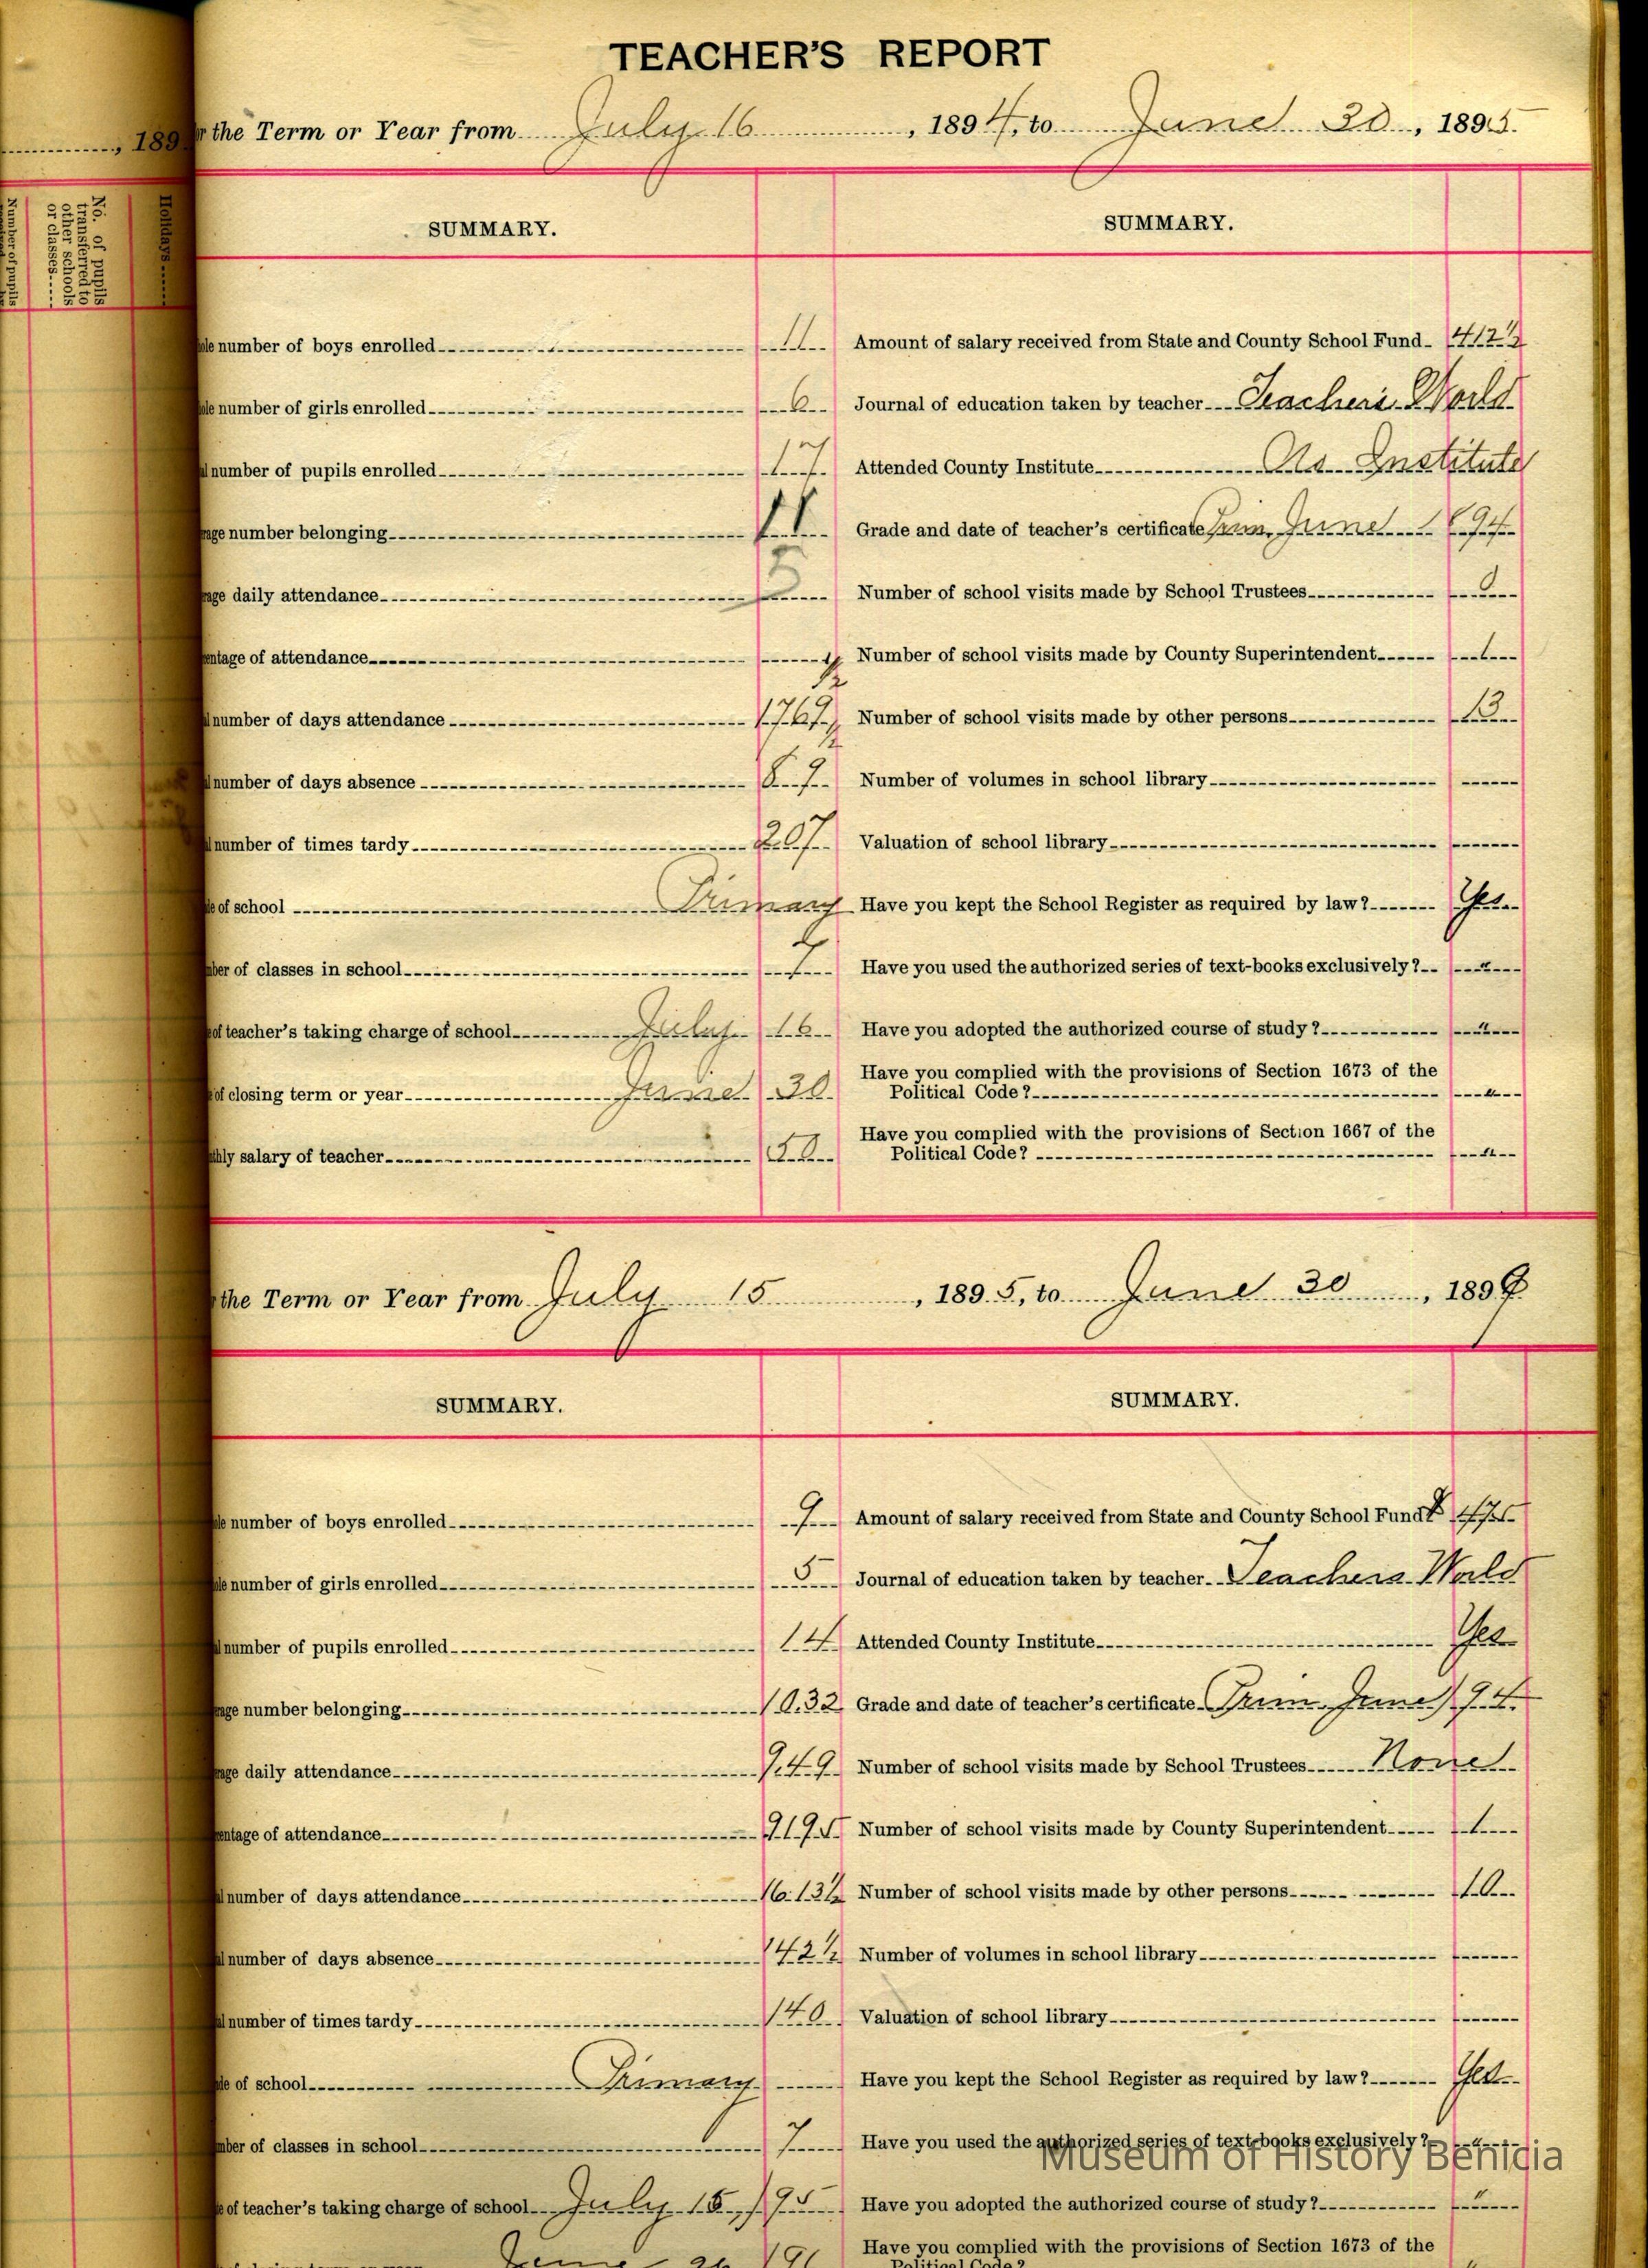 TEACHER'S REPORT
the Term or Year from July 16, 1894, to June 30, 1895.
, 189
No. of pupils transferred to other schools or classes
Holidays
Number of pupils
SUMMARY.
number of boys enrolled 11
number of girls enrolled 6
number of pupils enrolled 17
number belonging 11
daily attendance
of attendance
number of days attendance 1767 1/2
number of days absence
number of times tardy 207
of school Primary
of classes in school 7
of teacher's taking charge of school July 16
of closing term or year June 30
salary of teacher 50
SUMMARY.
Amount of salary received from State and County School Fund 412 1/2
Journal of education taken by teacher Teachers World
Attended County Institute No Institute
Grade and date of teacher's certificate Prim. June 1894
Number of school visits made by School Trustees 0
Number of school visits made by County Superintendent 1
Number of school visits made by other persons 13
Number of volumes in school library
Valuation of school library
Have you kept the School Register as required by law? Yes
Have you used the authorized series of text-books exclusively? "
Have you adopted the authorized course of study? "
Have you complied with the provisions of Section 1673 of the
Political Code? "
Have you complied with the provisions of Section 1667 of the
Political Code? "
the Term or Year from July 15, 1895, to June 30, 189
SUMMARY.
number of boys enrolled 9
number of girls enrolled 5
number of pupils enrolled 14
number belonging 10.32
daily attendance 9.49
of attendance 91.95
number of days attendance 1613 1/2
number of days absence 142 1/2
number of times tardy 140
of school Primary
of classes in school 7
of teacher's taking charge of school July 15, /95
June 26 /96
SUMMARY.
Amount of salary received from State and County School Fund $ 475
Journal of education taken by teacher Teachers World
Attended County Institute Yes
Grade and date of teacher's certificate Prim. June /94.
Number of school visits made by School Trustees None
Number of school visits made by County Superintendent 1
Number of school visits made by other persons 10
Number of volumes in school library
Valuation of school library
Have you kept the School Register as required by law? Yes
Have you used the authorized series of text-books exclusively? "
Have you adopted the authorized course of study? "
Have you complied with the provisions of Section 1673 of the
Political Code? "
Museum of History Benicia